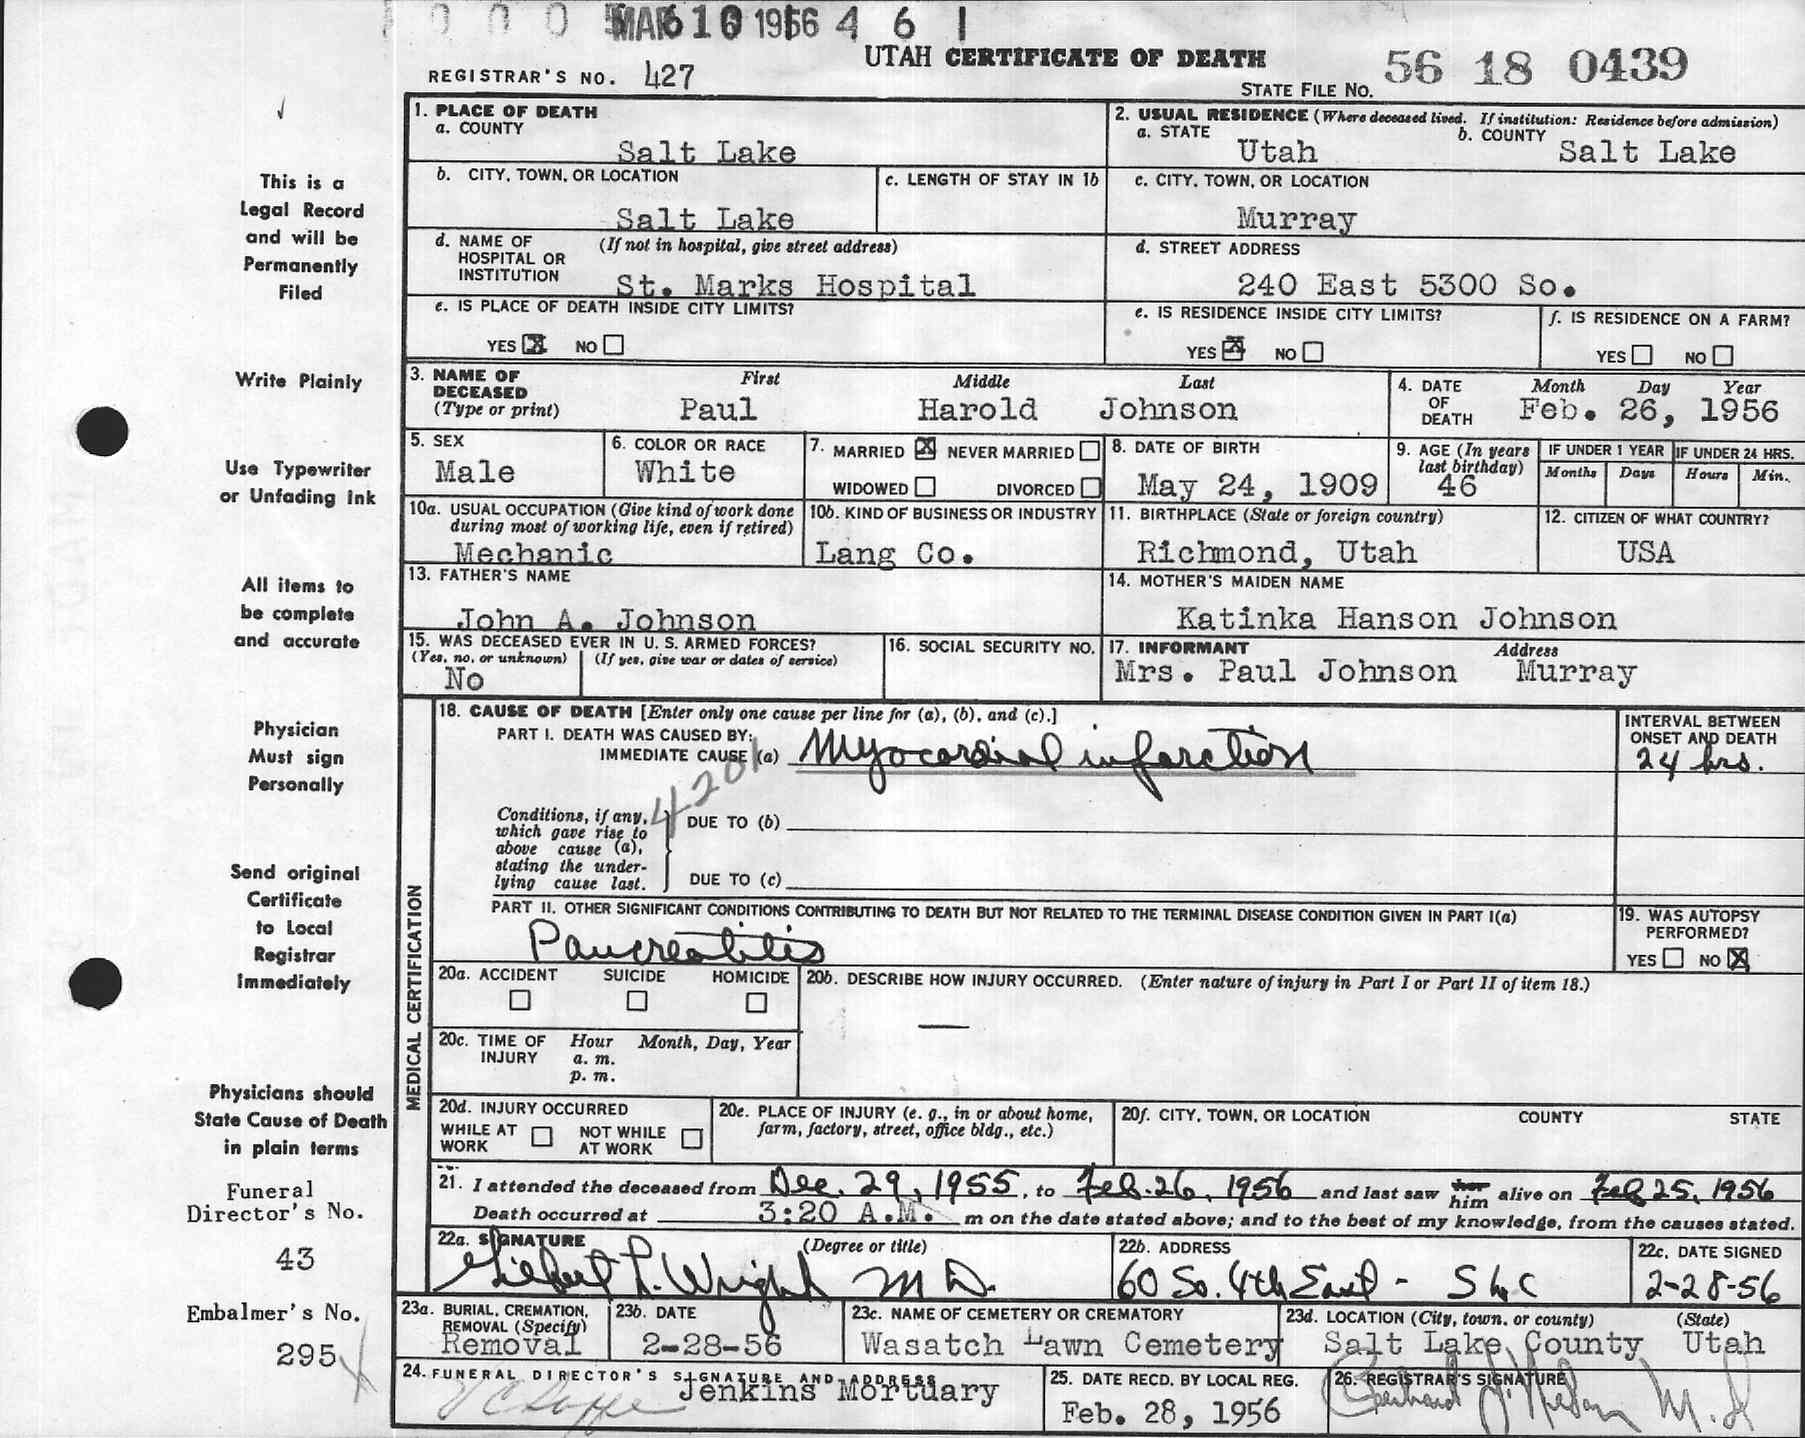 MAR 10 1956 4 6 1
UTAH CERTIFICATE OF DEATH
REGISTRAR'S NO. 427
STATE FILE NO. 56 18 0439
This is a
Legal Record
and will be
Permanently
Filed
Write Plainly
Use Typewriter
or Unfading Ink
All items to
be complete
and accurate
Physician
Must sign
Personally
Send original
Certificate
to Local
Registrar
Immediately
Physicians should
State Cause of Death
in plain terms
Funeral
Director's No.
43
Embalmer's No.
295
1. PLACE OF DEATH
a. COUNTY
Salt Lake
2. USUAL RESIDENCE (Where deceased lived. If institution: Residence before admission)
a. STATE
Utah
b. COUNTY
Salt Lake
b. CITY, TOWN, OR LOCATION
Salt Lake
c. LENGTH OF STAY IN 1b
c. CITY, TOWN, OR LOCATION
Murray
d. NAME OF (If not in hospital, give street address)
HOSPITAL OR
INSTITUTION
St. Marks Hospital
d. STREET ADDRESS
240 East 5300 So.
e. IS PLACE OF DEATH INSIDE CITY LIMITS?
YES X NO
e. IS RESIDENCE INSIDE CITY LIMITS?
YES X NO
f. IS RESIDENCE ON A FARM?
YES NO
3. NAME OF
DECEASED
(Type or print)
First Middle Last
Paul Harold Johnson
4. DATE
OF
DEATH
Month Day Year
Feb. 26, 1956
5. SEX
Male
6. COLOR OR RACE
White
7. MARRIED X NEVER MARRIED
WIDOWED DIVORCED
8. DATE OF BIRTH
May 24, 1909
9. AGE (In years
last birthday)
46
IF UNDER 1 YEAR
Months Days
IF UNDER 24 HRS.
Hours Min.
10a. USUAL OCCUPATION (Give kind of work done
during most of working life, even if retired)
Mechanic
10b. KIND OF BUSINESS OR INDUSTRY
Lang Co.
11. BIRTHPLACE (State or foreign country)
Richmond, Utah
12. CITIZEN OF WHAT COUNTRY?
USA
13. FATHER'S NAME
John A. Johnson
14. MOTHER'S MAIDEN NAME
Katinka Hanson Johnson
15. WAS DECEASED EVER IN U. S. ARMED FORCES?
(Yes, no, or unknown) (If yes, give war or dates of service)
No
16. SOCIAL SECURITY NO.
17. INFORMANT Address
Mrs. Paul Johnson Murray
MEDICAL CERTIFICATION
18. CAUSE OF DEATH [Enter only one cause per line for (a), (b), and (c).]
PART I. DEATH WAS CAUSED BY:
IMMEDIATE CAUSE (a) Myocardial infarction
4201
INTERVAL BETWEEN
ONSET AND DEATH
24 hrs.
Conditions, if any,
which gave rise to
above cause (a),
stating the under-
lying cause last.
DUE TO (b)
DUE TO (c)
PART II. OTHER SIGNIFICANT CONDITIONS CONTRIBUTING TO DEATH BUT NOT RELATED TO THE TERMINAL DISEASE CONDITION GIVEN IN PART I(a)
Pancreatitis
19. WAS AUTOPSY
PERFORMED?
YES NO X
20a. ACCIDENT SUICIDE HOMICIDE
20b. DESCRIBE HOW INJURY OCCURRED. (Enter nature of injury in Part I or Part II of item 18.)
—
20c. TIME OF
INJURY
Hour Month, Day, Year
a. m.
p. m.
20d. INJURY OCCURRED
WHILE AT
WORK
NOT WHILE
AT WORK
20e. PLACE OF INJURY (e. g., in or about home,
farm, factory, street, office bldg., etc.)
20f. CITY, TOWN, OR LOCATION COUNTY STATE
21. I attended the deceased from Dec. 29, 1955, to Feb. 26, 1956 and last saw her him alive on Feb 25, 1956
Death occurred at 3:20 A.M. m on the date stated above; and to the best of my knowledge, from the causes stated.
22a. SIGNATURE (Degree or title)
Gilbert L. Wright M D.
22b. ADDRESS
60 So. 4th East - SLC
22c. DATE SIGNED
2-28-56
23a. BURIAL, CREMATION,
REMOVAL (Specify)
Removal
23b. DATE
2-28-56
23c. NAME OF CEMETERY OR CREMATORY
Wasatch Lawn Cemetery
23d. LOCATION (City, town, or county) (State)
Salt Lake County Utah
24. FUNERAL DIRECTOR'S SIGNATURE AND ADDRESS
Jenkins Mortuary
25. DATE RECD. BY LOCAL REG.
Feb. 28, 1956
26. REGISTRAR'S SIGNATURE
M. D